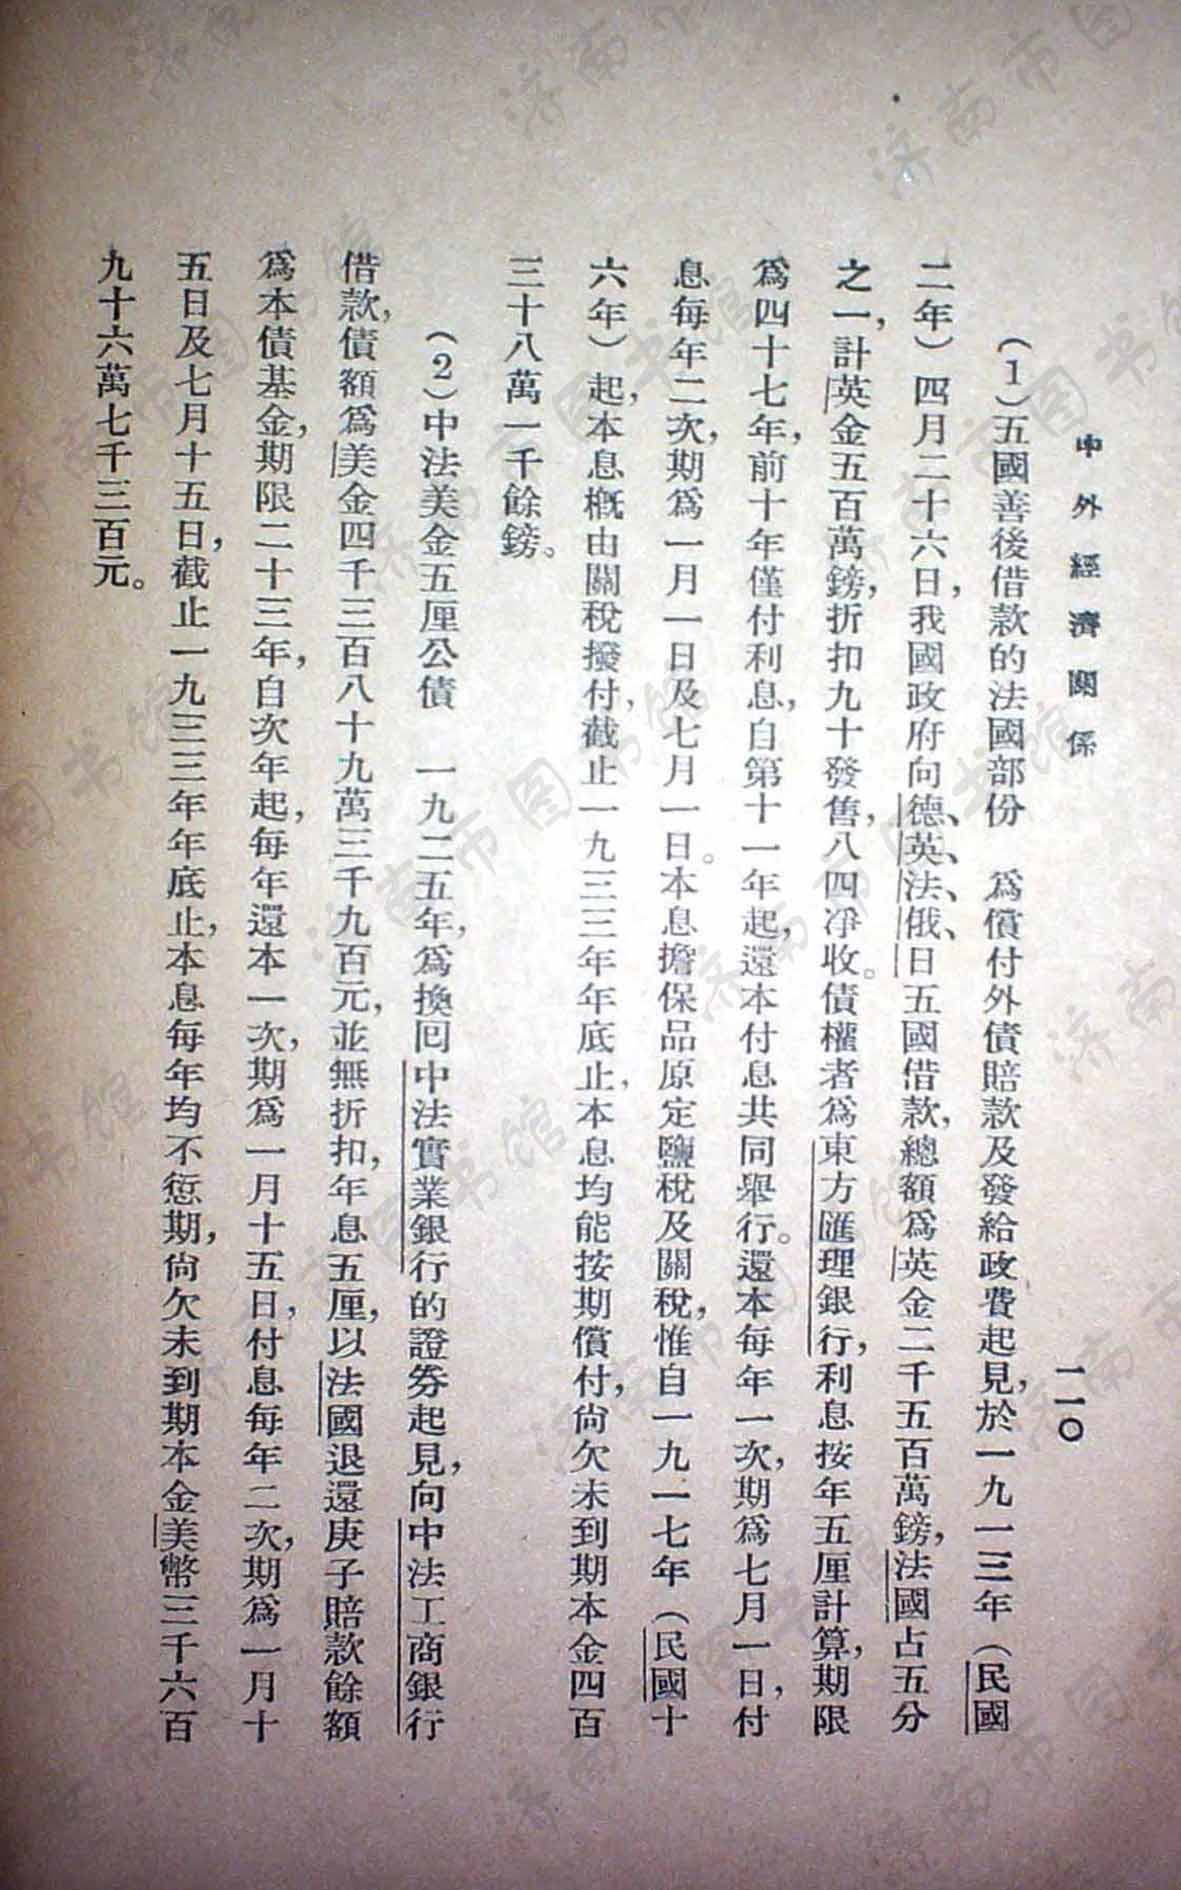 中外經濟關係
一一〇
（1）五國善後借款的法國部份　爲償付外債賠款及發給政費起見，於一九一三年（民國
二年）四月二十六日，我國政府向德、英、法、俄、日五國借款，總額爲英金二千五百萬鎊，法國占五分
之一，計英金五百萬鎊，折扣九十發售，八四凈收。債權者爲東方匯理銀行，利息按年五厘計算，期限
爲四十七年，前十年僅付利息，自第十一年起，還本付息共同舉行。還本每年一次，期爲七月一日，付
息每年二次，期爲一月一日及七月一日。本息擔保品原定鹽稅及關稅，惟自一九一七年（民國十
六年）起，本息概由關稅撥付，截止一九三三年年底止，本息均能按期償付，尙欠未到期本金四百
三十八萬一千餘鎊。
（2）中法美金五厘公債　一九二五年，爲換回中法實業銀行的證券起見，向中法工商銀行
借款，債額爲美金四千三百八十九萬三千九百元，並無折扣，年息五厘，以法國退還庚子賠款餘額
爲本債基金，期限二十三年，自次年起，每年還本一次，期爲一月十五日，付息每年二次，期爲一月十
五日及七月十五日，截止一九三三年年底止，本息每年均不愆期，尙欠未到期本金美幣三千六百
九十六萬七千三百元。
济南市图书馆